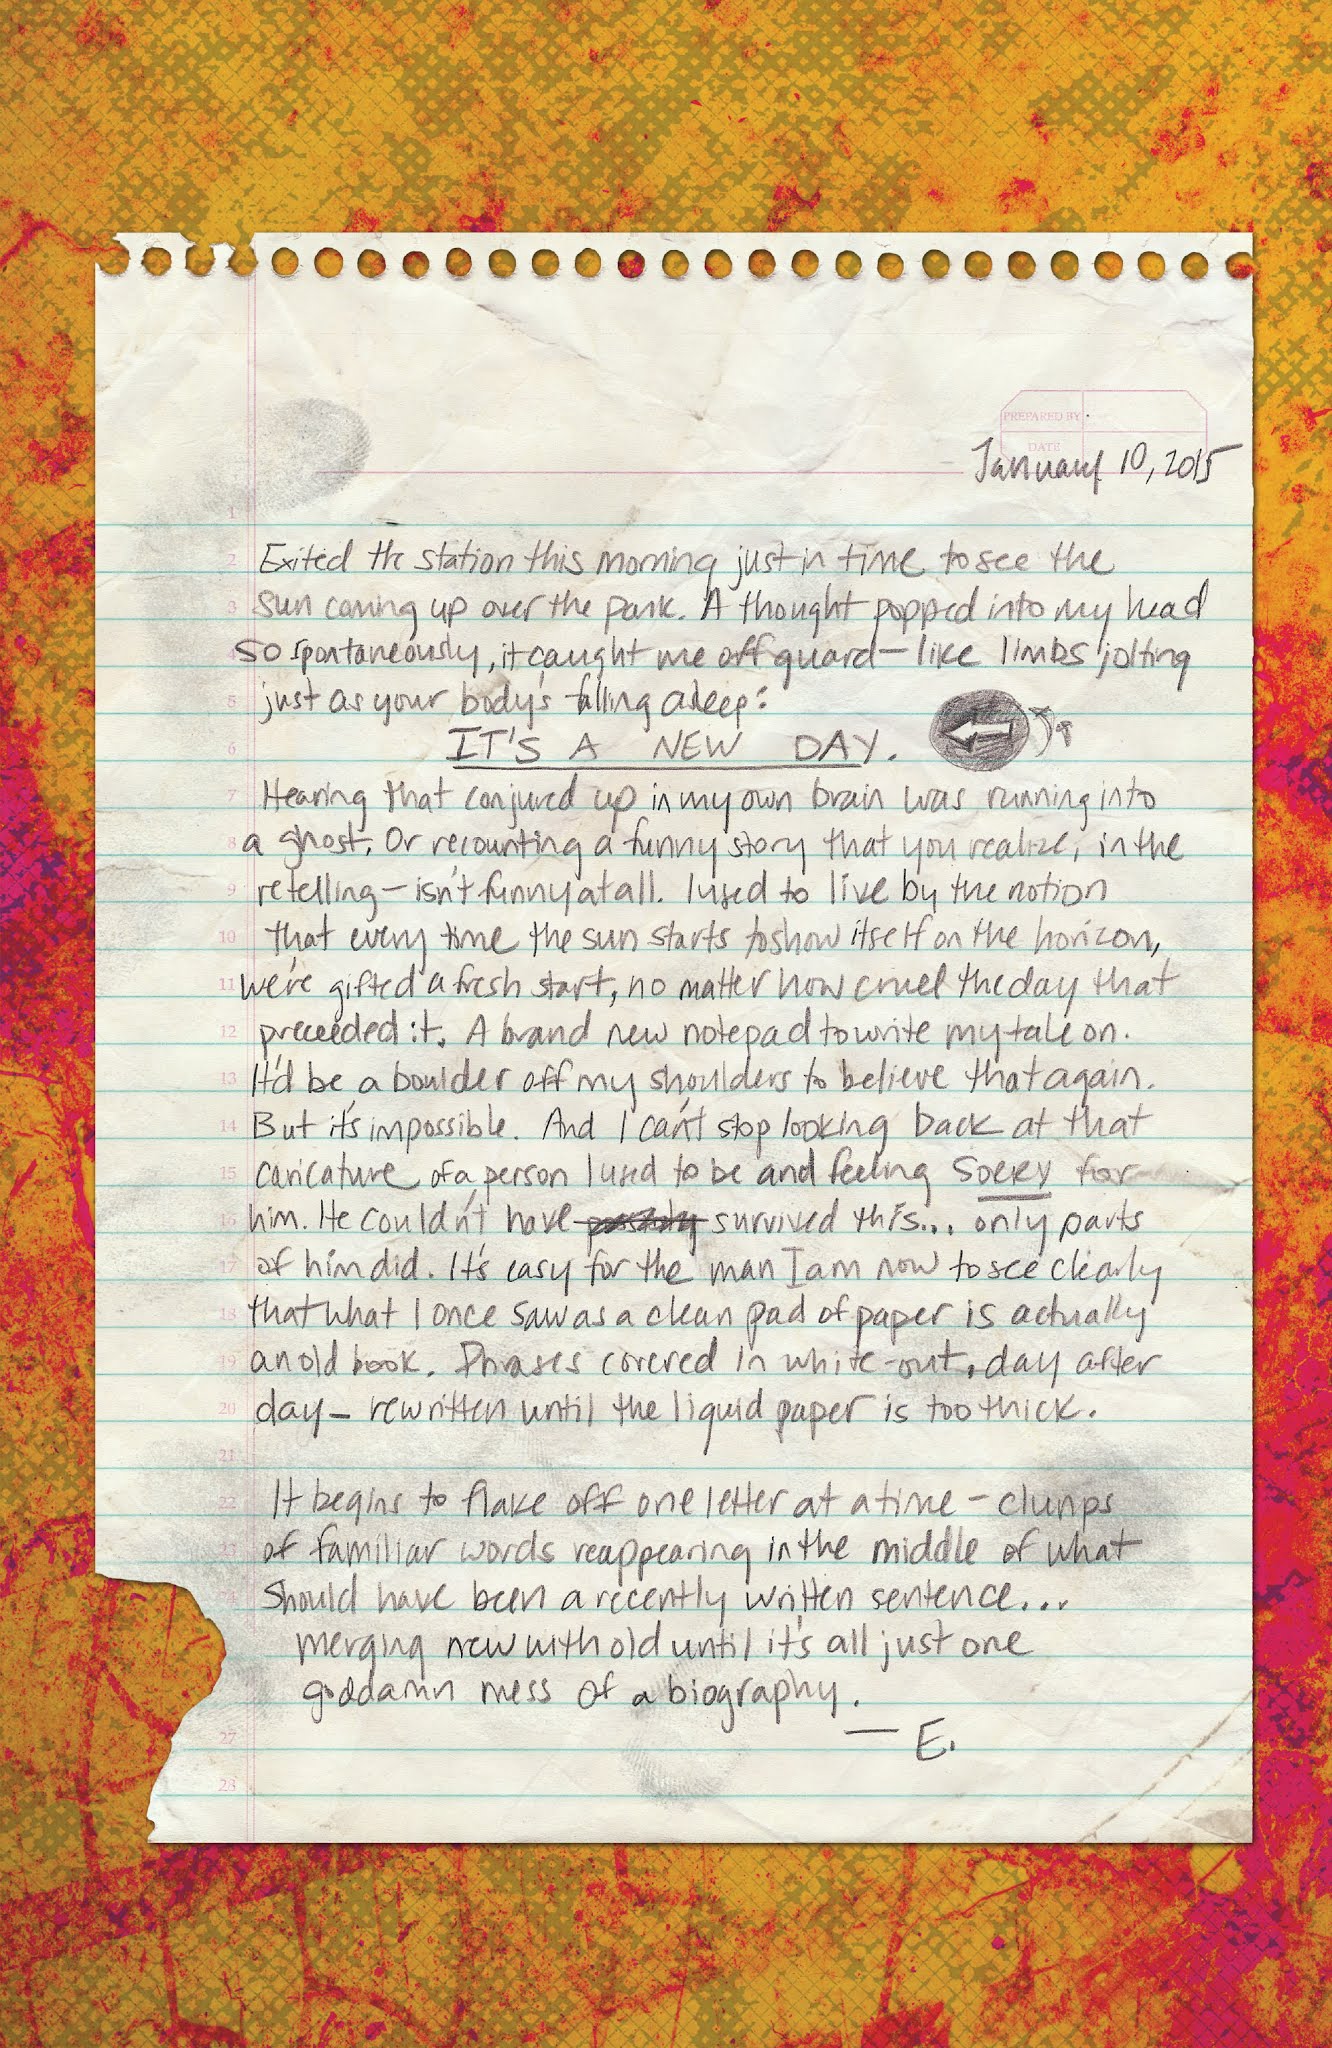 PREPARED BY
DATE
January 10, 2015
1
2 Exited the station this morning just in time to see the
3 sun coming up over the park. A thought popped into my head
4 so spontaneously, it caught me off guard— like limbs jolting
5 just as your body's falling asleep:
6 IT'S A NEW DAY.
7 Hearing that conjured up in my own brain was running into
8 a ghost. Or recounting a funny story that you realize, in the
9 retelling— isn't funny at all. I used to live by the notion
10 that every time the sun starts to show itself on the horizon,
11 we're gifted a fresh start, no matter how cruel the day that
12 preceeded it. A brand new notepad to write my tale on.
13 It'd be a boulder off my shoulders to believe that again.
14 But it's impossible. And I can't stop looking back at that
15 caricature of a person I used to be and feeling SORRY for
16 him. He couldn't have possibly survived this... only parts
17 of him did. It's easy for the man I am now to see clearly
18 that what I once saw as a clean pad of paper is actually
19 an old book. Phrases covered in white-out, day after
20 day— rewritten until the liquid paper is too thick.
21
22 It begins to flake off one letter at a time — clumps
23 of familiar words reappearing in the middle of what
24 should have been a recently written sentence...
merging new with old until it's all just one
goddamn mess of a biography.
27 — E.
28